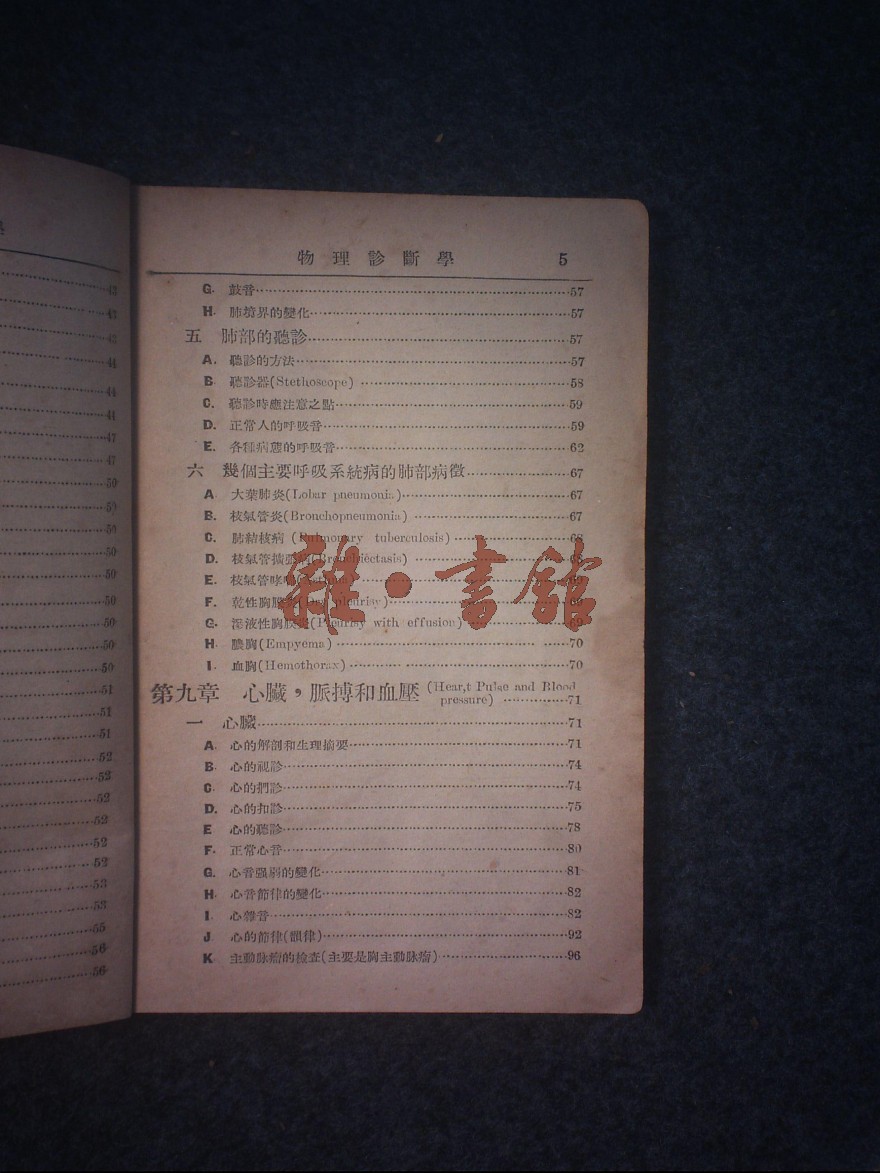 物理診斷學 5
G. 鼓音 57
H. 肺境界的變化 57
五 肺部的聽診 57
A. 聽診的方法 57
B 聽診器(Stethoscope) 58
C. 聽診時應注意之點 59
D. 正常人的呼吸音 59
E. 各種病態的呼吸音 62
六 幾個主要呼吸系統病的肺部病徵 67
A 大葉肺炎(Lobar pneumonia) 67
B. 枝氣管炎(Bronchopneumonia) 67
C. 肺結核病 (Pulmonary tuberculosis) 68
D. 枝氣管擴張病(Bronchiectasis) 68
E. 枝氣管哮喘(Asthma) 69
F. 乾性胸膜炎(Dry pleurisy) 69
G. 泥液性胸膜炎(Pleurisy with effusion) 69
H. 膿胸(Empyema) 70
I. 血胸(Hemothorax) 70
第九章 心臟，脈搏和血壓 (Hear,t Pulse and Blood
pressure) 71
一 心臟 71
A. 心的解剖和生理摘要 71
B. 心的視診 74
C. 心的捫診 74
D. 心的扣診 75
E 心的聽診 78
F. 正常心音 80
G. 心音强弱的變化 81
H. 心音節律的變化 82
I. 心雜音 82
J. 心的節律(韻律) 92
K 主動脉瘤的檢査(主要是胸主動脉瘤) 96
雜·書館
43
43
43
44
44
44
47
47
50
50
50
50
50
50
50
50
50
51
51
51
52
52
52
52
52
52
53
53
55
56
56